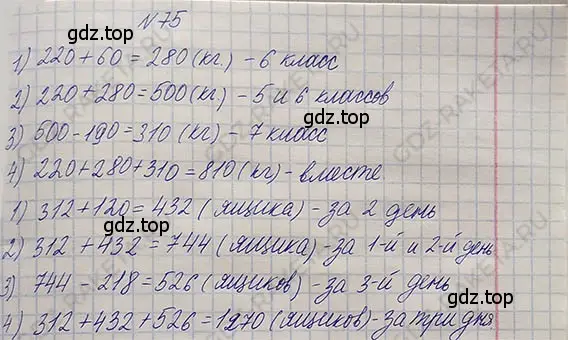 N 75
1) 220+60=280(кг) - 6 класс
2) 220+280=500(кг) - 5 и 6 классов
3) 500-190=310(кг) - 7 класс
4) 220+280+310=810(кг) - вместе
1) 312+120=432 (ящика) - за 2 день
2) 312+432=744 (ящика) - за 1-й и 2-й день
3) 744-218=526 (ящиков) - за 3-й день
4) 312+432+526=1270 (ящиков) - за три дня
gdz.top
gdz.top
gdz.top
gdz.top
gdz.top
gdz.top
GDZ-RAKETA.RU
GDZ-RAKETA.RU